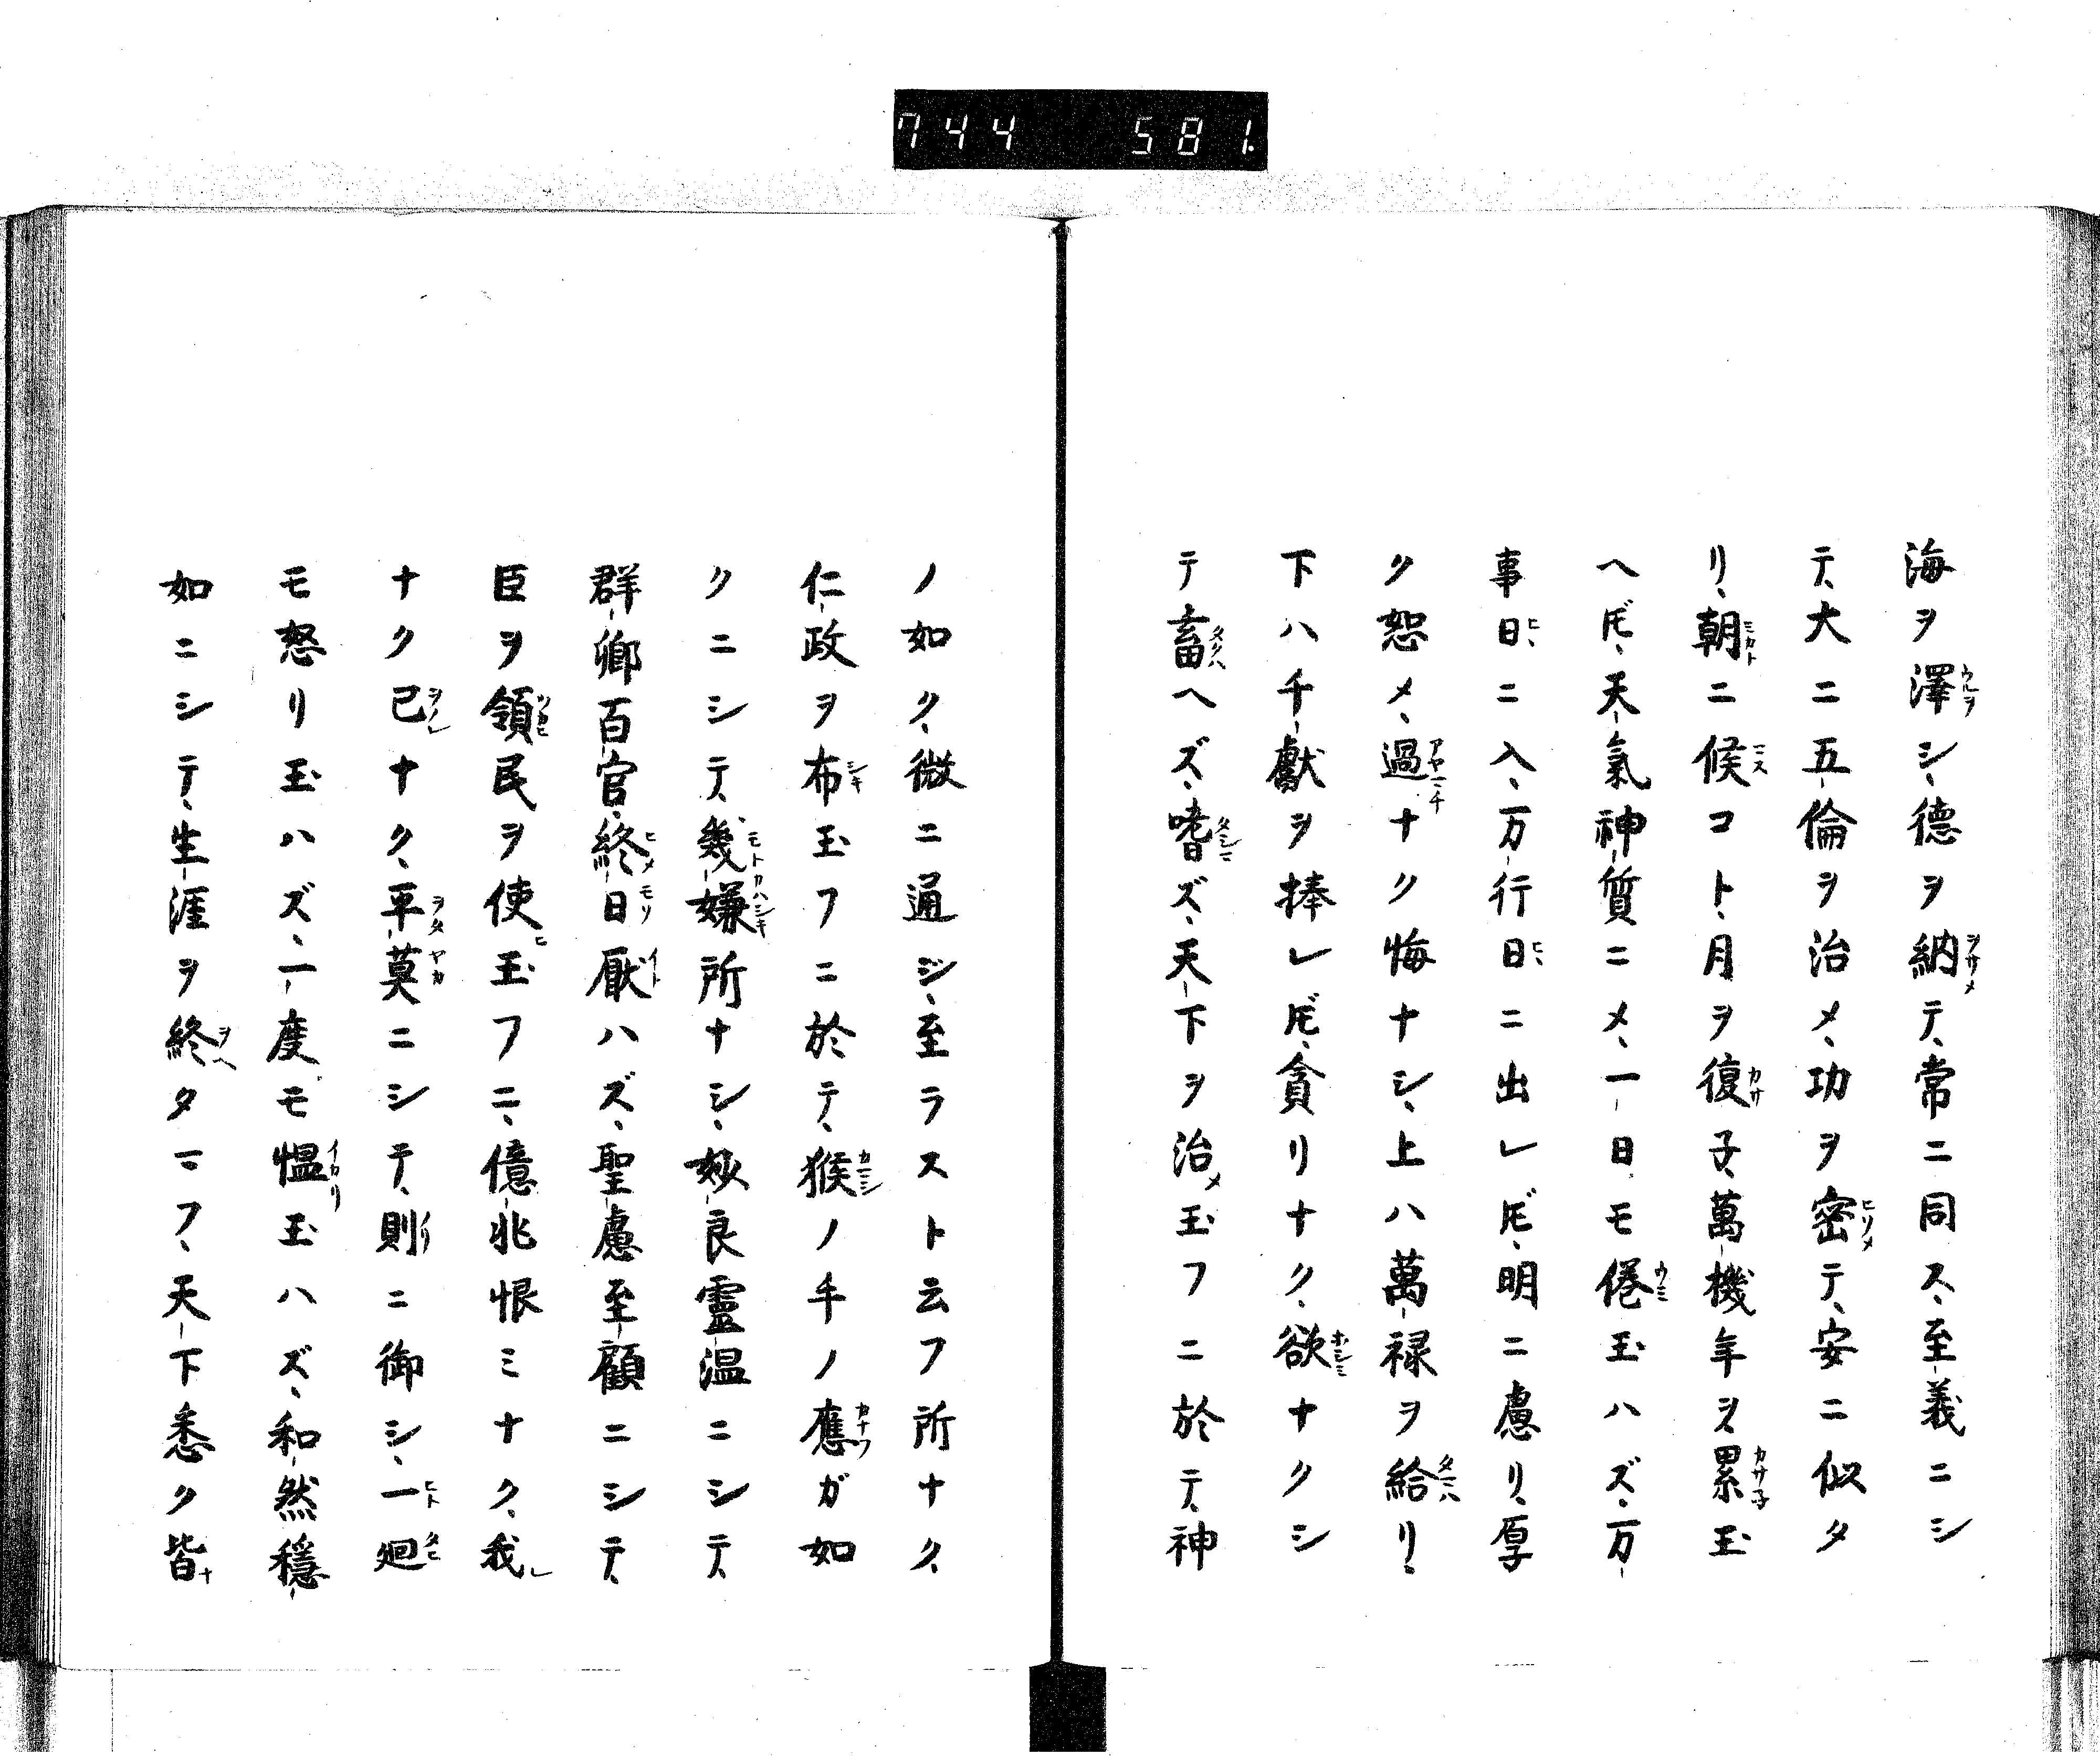 744 581.
海ヲ澤シ、德ヲ納テ、常ニ同ス、至義ニシ
テ、大ニ五倫ヲ治メ、功ヲ密テ、安ニ似タ
リ、朝ニ候コト、月ヲ復子、萬機年ヲ累玉
ヘ𪜈、天氣神質ニメ、一日モ倦玉ハズ、万
事日ニ入、万行日ニ出レ𪜈、明ニ慮リ、厚
ク恕メ、過ナク悔ナシ、上ハ萬禄ヲ給リ、
下ハ千獻ヲ捧レ𪜈、貪リナク、欲ナクシ
テ畜ヘズ、嗜ズ、天下ヲ治メ玉フニ於テ、神
ノ如ク、微ニ通ジ、至ラスト云フ所ナク、
仁政ヲ布玉フニ於テ、猴ノ手ノ應ガ如
クニシテ、幾嫌所ナシ、妙良靈温ニシテ、
群卿百官、終日厭ハズ、聖慮至顧ニシテ、
臣ヲ領民ヲ使玉フニ、億兆恨ミナク、我
ナク己ナク、平莫ニシテ、則ニ御シ、一廻
モ怒リ玉ハズ、一度モ慍玉ハズ、和然穩
如ニシテ、生涯ヲ終タマフ、天下悉ク皆